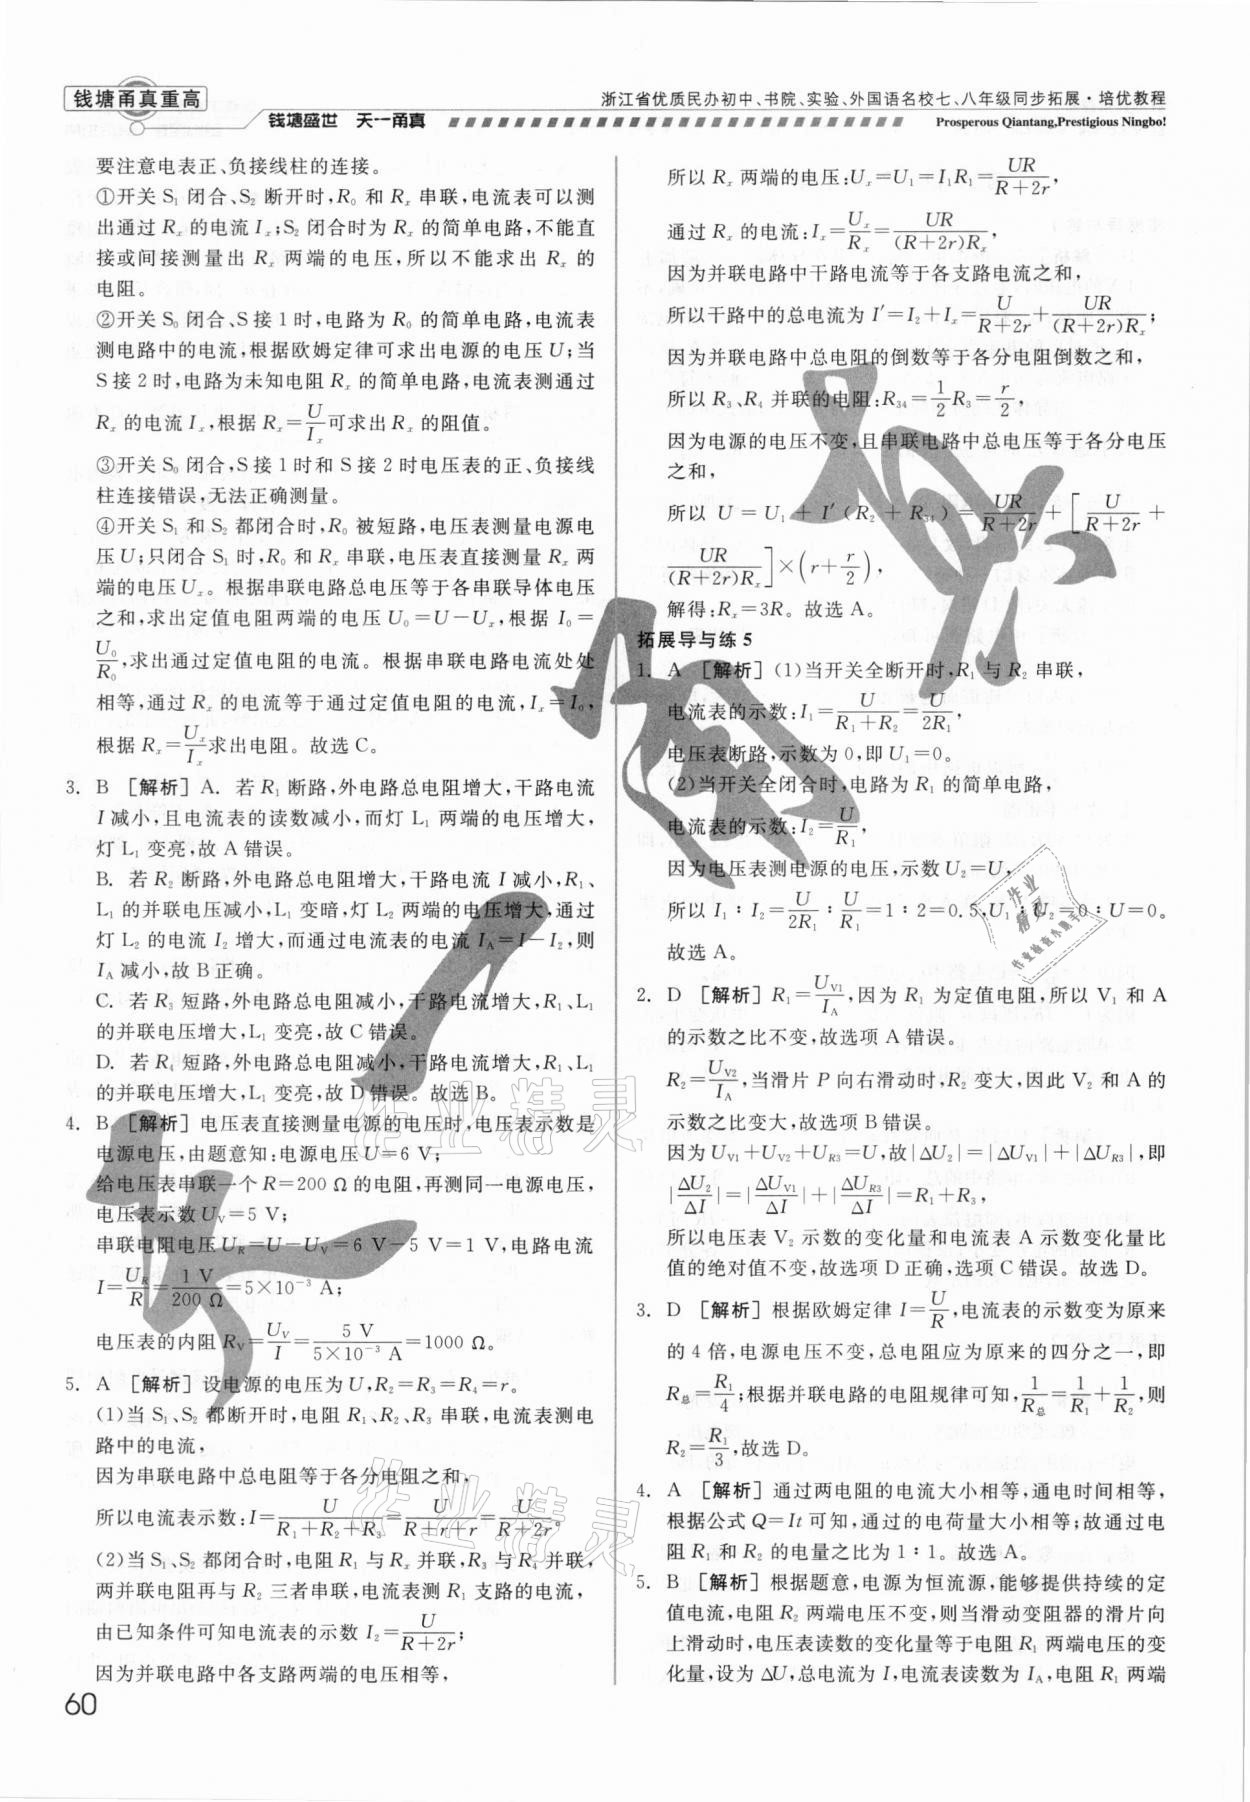 钱塘甬真重高
钱塘盛世 天一甬真
浙江省优质民办初中、书院、实验、外国语名校七、八年级同步拓展·培优教程
Prosperous Qiantang,Prestigious Ningbo!
要注意电表正、负接线柱的连接。
①开关 S₁ 闭合、S₂ 断开时,R₀ 和 Rₓ 串联,电流表可以测
出通过 Rₓ 的电流 Iₓ;S₂ 闭合时为 Rₓ 的简单电路,不能直
接或间接测量出 Rₓ 两端的电压,所以不能求出 Rₓ 的
电阻。
②开关 S₀ 闭合、S 接 1 时,电路为 R₀ 的简单电路,电流表
测电路中的电流,根据欧姆定律可求出电源的电压 U;当
S 接 2 时,电路为未知电阻 Rₓ 的简单电路,电流表测通过
Rₓ 的电流 Iₓ,根据 Rₓ=U/Iₓ可求出 Rₓ 的阻值。
③开关 S₀ 闭合,S 接 1 时和 S 接 2 时电压表的正、负接线
柱连接错误,无法正确测量。
④开关 S₁ 和 S₂ 都闭合时,R₀ 被短路,电压表测量电源电
压 U;只闭合 S₁ 时,R₀ 和 Rₓ 串联,电压表直接测量 Rₓ 两
端的电压 Uₓ。根据串联电路总电压等于各串联导体电压
之和,求出定值电阻两端的电压 U₀=U-Uₓ,根据 I₀=
U₀/R₀,求出通过定值电阻的电流。根据串联电路电流处处
相等,通过 Rₓ 的电流等于通过定值电阻的电流,Iₓ=I₀,
根据 Rₓ=Uₓ/Iₓ求出电阻。故选 C。
3. B [解析] A. 若 R₁ 断路,外电路总电阻增大,干路电流
I 减小,且电流表的读数减小,而灯 L₁ 两端的电压增大,
灯 L₁ 变亮,故 A 错误。
B. 若 R₂ 断路,外电路总电阻增大,干路电流 I 减小,R₁、
L₁ 的并联电压减小,L₁ 变暗,灯 L₂ 两端的电压增大,通过
灯 L₂ 的电流 I₂ 增大,而通过电流表的电流 I_A=I-I₂,则
I_A 减小,故 B 正确。
C. 若 R₃ 短路,外电路总电阻减小,干路电流增大,R₁、L₁
的并联电压增大,L₁ 变亮,故 C 错误。
D. 若 R₄ 短路,外电路总电阻减小,干路电流增大,R₁、L₁
的并联电压增大,L₁ 变亮,故 D 错误。故选 B。
4. B [解析] 电压表直接测量电源的电压时,电压表示数是
电源电压,由题意知:电源电压 U=6 V;
给电压表串联一个 R=200 Ω 的电阻,再测同一电源电压,
电压表示数 U_V=5 V;
串联电阻电压 U_R=U-U_V=6 V-5 V=1 V,电路电流
I=U_R/R=1 V/200 Ω=5×10⁻³ A;
电压表的内阻 R_V=U_V/I=5 V/(5×10⁻³ A)=1000 Ω。
5. A [解析] 设电源的电压为 U,R₂=R₃=R₄=r。
(1)当 S₁、S₂ 都断开时,电阻 R₁、R₂、R₃ 串联,电流表测电
路中的电流,
因为串联电路中总电阻等于各分电阻之和,
所以电流表示数:I=U/(R₁+R₂+R₃)=U/(R+r+r)=U/(R+2r)。
(2)当 S₁、S₂ 都闭合时,电阻 R₁ 与 Rₓ 并联,R₃ 与 R₄ 并联,
两并联电阻再与 R₂ 三者串联,电流表测 R₁ 支路的电流,
由已知条件可知电流表的示数 I₂=U/(R+2r);
因为并联电路中各支路两端的电压相等,
60
所以 Rₓ 两端的电压:Uₓ=U₁=I₁R₁=UR/(R+2r),
通过 Rₓ 的电流:Iₓ=Uₓ/Rₓ=UR/((R+2r)Rₓ),
因为并联电路中干路电流等于各支路电流之和,
所以干路中的总电流为 I′=I₂+Iₓ=U/(R+2r)+UR/((R+2r)Rₓ);
因为并联电路中总电阻的倒数等于各分电阻倒数之和,
所以 R₃、R₄ 并联的电阻:R₃₄=1/2 R₃=r/2,
因为电源的电压不变,且串联电路中总电压等于各分电压
之和,
所以 U = U₁ + I′(R₂ + R₃₄) = UR/(R+2r) + [U/(R+2r) +
UR/((R+2r)Rₓ)]×(r+r/2),
解得:Rₓ=3R。故选 A。
拓展导与练 5
1. A [解析] (1)当开关全断开时,R₁ 与 R₂ 串联,
电流表的示数:I₁=U/(R₁+R₂)=U/2R₁,
电压表断路,示数为 0,即 U₁=0。
(2)当开关全闭合时,电路为 R₁ 的简单电路,
电流表的示数:I₂=U/R₁,
因为电压表测电源的电压,示数 U₂=U,
所以 I₁∶I₂=U/2R₁∶U/R₁=1∶2=0.5,U₁∶U₂=0∶U=0。
故选 A。
2. D [解析] R₁=U_V1/I_A,因为 R₁ 为定值电阻,所以 V₁ 和 A
的示数之比不变,故选项 A 错误。
R₂=U_V2/I_A,当滑片 P 向右滑动时,R₂ 变大,因此 V₂ 和 A 的
示数之比变大,故选项 B 错误。
因为 U_V1+U_V2+U_R3=U,故|ΔU₂|=|ΔU_V1|+|ΔU_R3|,即
|ΔU₂/ΔI|=|ΔU_V1/ΔI|+|ΔU_R3/ΔI|=R₁+R₃,
所以电压表 V₂ 示数的变化量和电流表 A 示数变化量比
值的绝对值不变,故选项 D 正确,选项 C 错误。故选 D。
3. D [解析] 根据欧姆定律 I=U/R,电流表的示数变为原来
的 4 倍,电源电压不变,总电阻应为原来的四分之一,即
R总=R₁/4;根据并联电路的电阻规律可知,1/R总=1/R₁+1/R₂,则
R₂=R₁/3,故选 D。
4. A [解析] 通过两电阻的电流大小相等,通电时间相等,
根据公式 Q=It 可知,通过的电荷量大小相等;故通过电
阻 R₁ 和 R₂ 的电量之比为 1∶1。故选 A。
5. B [解析] 根据题意,电源为恒流源,能够提供持续的定
值电流,电阻 R₂ 两端电压不变,则当滑动变阻器的滑片向
上滑动时,电压表读数的变化量等于电阻 R₁ 两端电压的变
化量,设为 ΔU,总电流为 I,电流表读数为 I_A,电阻 R₁ 两端
天一甬真
作业精灵
作业精灵
作业
精灵
作业检查小助手